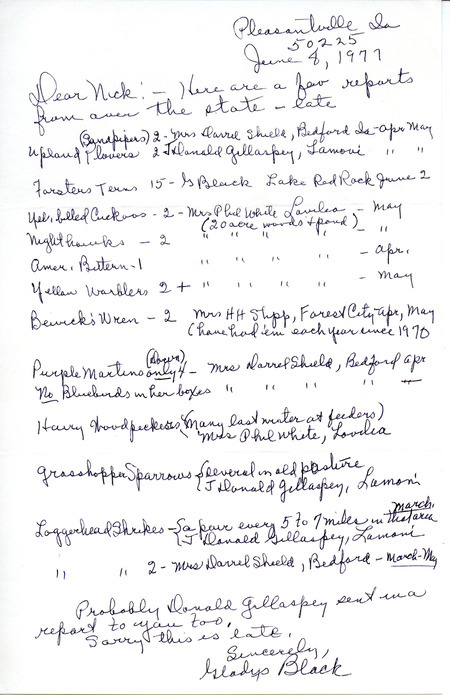 Pleasantville Ia
50225
June 8, 1977
Dear Nick! - Here are a few reports
from over the state - late
(Sandpipers) 2 - Mrs Darrel Shield, Bedford Ia - Apr May
Upland Plovers 2 J Donald Gillaspey, Lamoni " "
Forsters Terns 15 - G Black Lake Red Rock June 2
Yel. billed Cuckoos - 2 - Mrs Phil White Lovilia - May
(20 acre woods + pond)
Nighthawks - 2 " " " " - "
Amer. Bittern - 1 " " " " - Apr.
Yellow Warblers 2 + " " " " - May
Bewick's Wren - 2 Mrs HH Stipp, Forest City - Apr, May
(have had 'em each year since 1970
(down)
Purple Martins only 4 - Mrs Darrel Shield, Bedford Apr
No Bluebirds in her boxes " " " " "
Hairy Woodpeckers (Many last winter at feeders)
Mrs Phil White, Lovilia
Grasshopper Sparrows {Several in old pasture
J Donald Gillaspey, Lamoni
March.
Loggerhead Shrikes - {a pair every 5 to 7 miles in that area
J Donald Gillaspey, Lamoni
" " 2 - Mrs Darrel Shield, Bedford - March - May
Probably Donald Gillaspey sent in a
report to you too.
Sorry this is late.
Sincerely,
Gladys Black